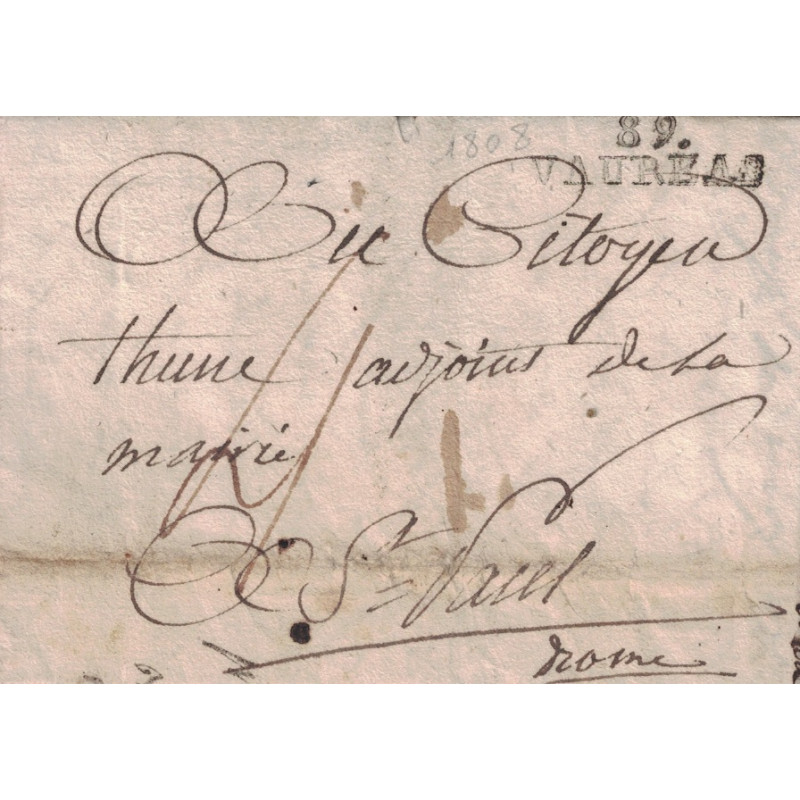 1808
89.
VAUREAS
Au Citoyen
thune adjoint de La
mairie
A St Paul
drome